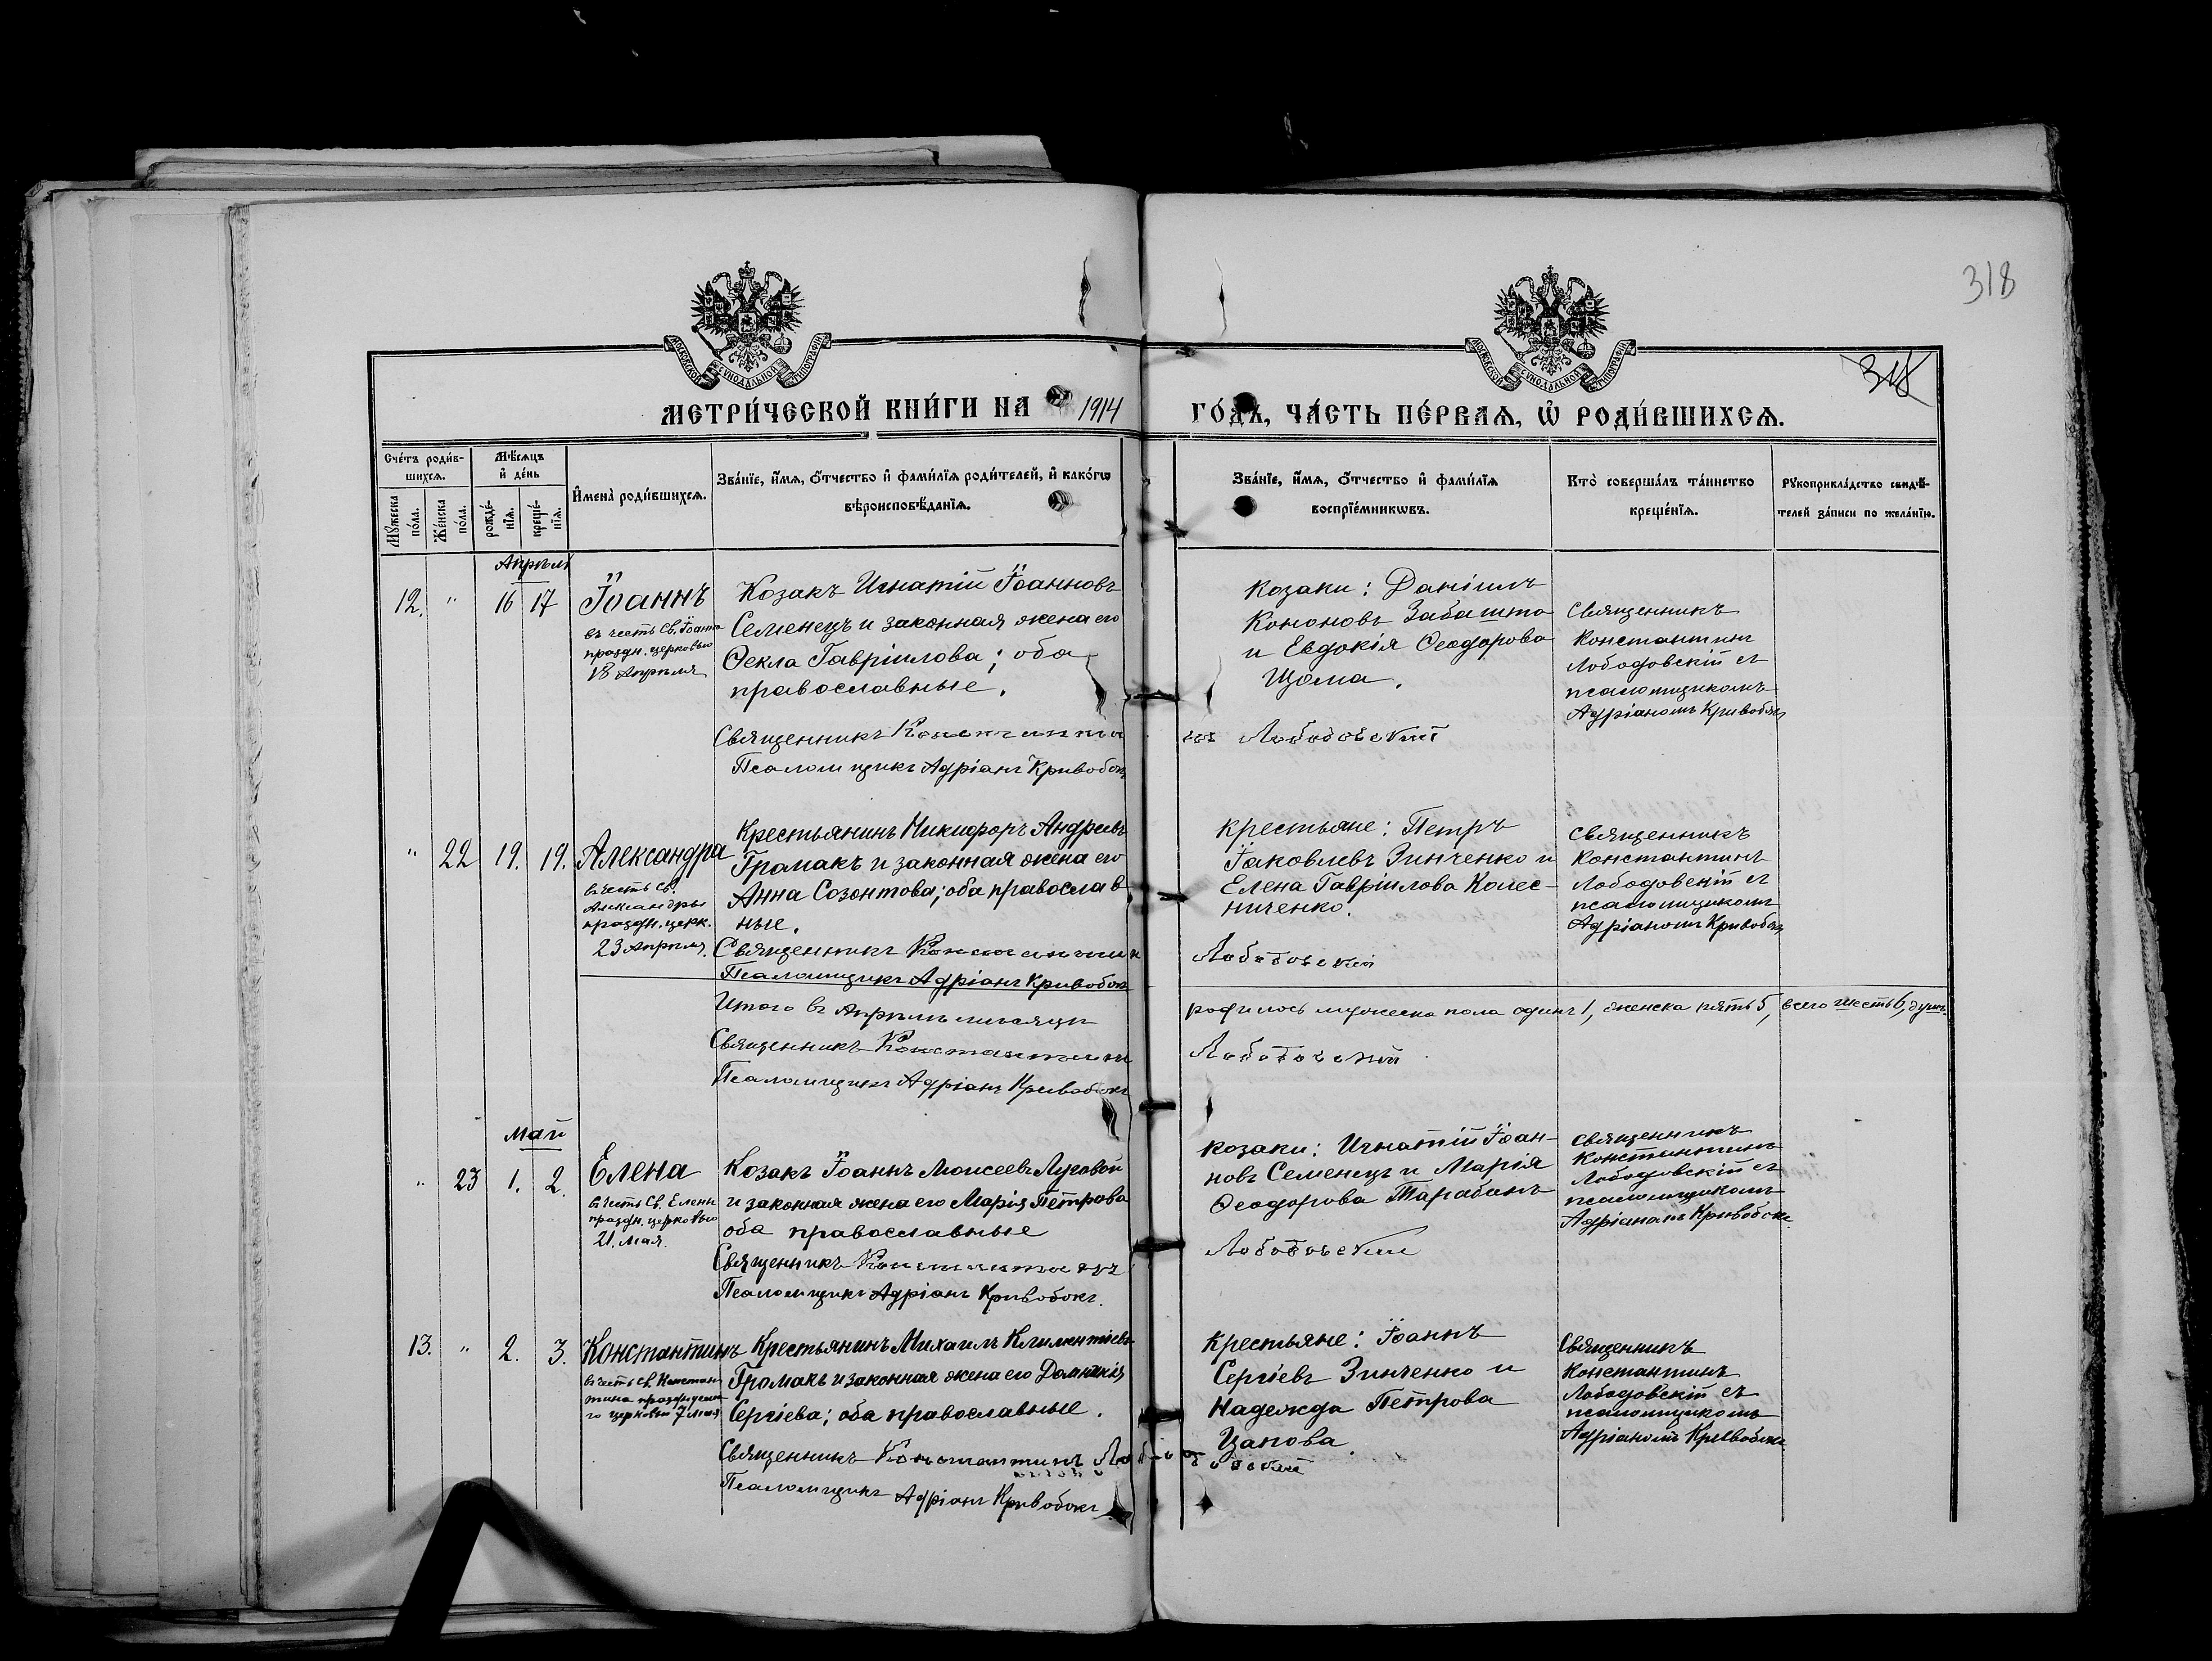 318
МОСКОВСКОЙ СѴНОДАЛЬНОЙ ТИПОГРАФІИ
МОСКОВСКОЙ СѴНОДАЛЬНОЙ ТИПОГРАФІИ
318
МЕТРИ́ЧЕСКОЙ КНИ́ГИ НА 1914 ГО́ДЪ, ЧА́СТЬ ПЕ́РВАѦ, Ѡ РОДИ́ВШИХСѦ.
Сче́тъ роди́в-
шихсѧ.
Мꙋ́жеска
по́ла.
Же́нска
по́ла.
Мѣ́сѧцъ
и де́нь
рожде́-
нїѧ.
креще́-
нїѧ.
Имена̀ роди́вшихсѧ.
Зва́нїе, и́мѧ, о́тчество и фами́лїѧ роди́телей, и како́гѡ
вѣроисповѣ́данїѧ.
Зва́нїе, и́мѧ, о́тчество и фами́лїѧ
воспрїе́мникѡвъ.
Кто̀ соверша́лъ та́инство
креще́нїѧ.
Рꙋкоприкла́дство свидѣ́-
телей за́писи по жела́нїю.
Апрѣль
12. " 16 17 Іоаннъ
въ честь Св. Іоанна
праздн. церковью
18 Апрѣля
Козакъ Игнатій Іоанновъ
Семенецъ и законная жена его
Ѳекла Гавріилова; оба
православные.
Священникъ Константинъ Лободовскій
Псаломщикъ Адріанъ Кривобокъ
Козаки: Даніилъ
Кононовъ Забашта
и Евдокія Ѳеодорова
Щома.
Священникъ
Константинъ
Лободовскій съ
псаломщикомъ
Адріаномъ Кривобок
" 22 19. 19. Александра
въ честь св.
Александры
праздн. церк.
23 Апрѣля.
Крестьянинъ Никифоръ Андреевъ
Громакъ и законная жена его
Анна Созонтова; оба православ
ные.
Священникъ Константинъ Лободовскій
Псаломщикъ Адріанъ Кривобокъ
Крестьяне: Петръ
Іаковлевъ Зинченко и
Елена Гавріилова Колес-
ниченко.
Священникъ
Константинъ
Лободовскій съ
псаломщикомъ
Адріаномъ Кривобок
Итого въ Апрѣлѣ мѣсяцѣ родилось мужеска пола одинъ 1, женска пять 5, всего шесть 6, душъ.
Священникъ Константинъ Лободовскій
Псаломщикъ Адріанъ Кривобокъ
Май
" 23 1. 2. Елена
въ честь Св. Елены
праздн. церковью
21. Мая.
Козакъ Іоаннъ Моисеевъ Луговой
и законная жена его Марія Петрова
оба православные
Священникъ Константинъ Лободовскій
Псаломщикъ Адріанъ Кривобокъ.
Козаки: Игнатій Іоан-
новъ Семенецъ и Марія
Ѳеодорова Тарабанъ
Священникъ
Константинъ
Лободовскій съ
псаломщикомъ
Адріаномъ Кривобок
13. " 2. 3. Константинъ
въ честь Св. Констан
тина празднуема
го церковью 7 мая
Крестьянинъ Михаилъ Климентіевъ
Громакъ и законная жена его Домникія
Сергіева; оба православные.
Священникъ Константинъ Лободовскій
Псаломщикъ Адріанъ Кривобокъ
Крестьяне: Іоаннъ
Сергіевъ Зинченко и
Надежда Петрова
Цапова.
Священникъ
Константинъ
Лободовскій съ
псаломщикомъ
Адріаномъ Кривобок